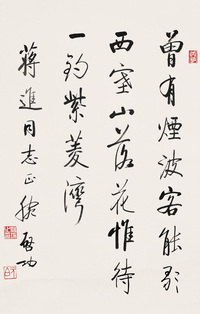 曾有煙波客能歌
西塞山落花惟待
一釣紫菱灣
蔣進同志正腕
啓功